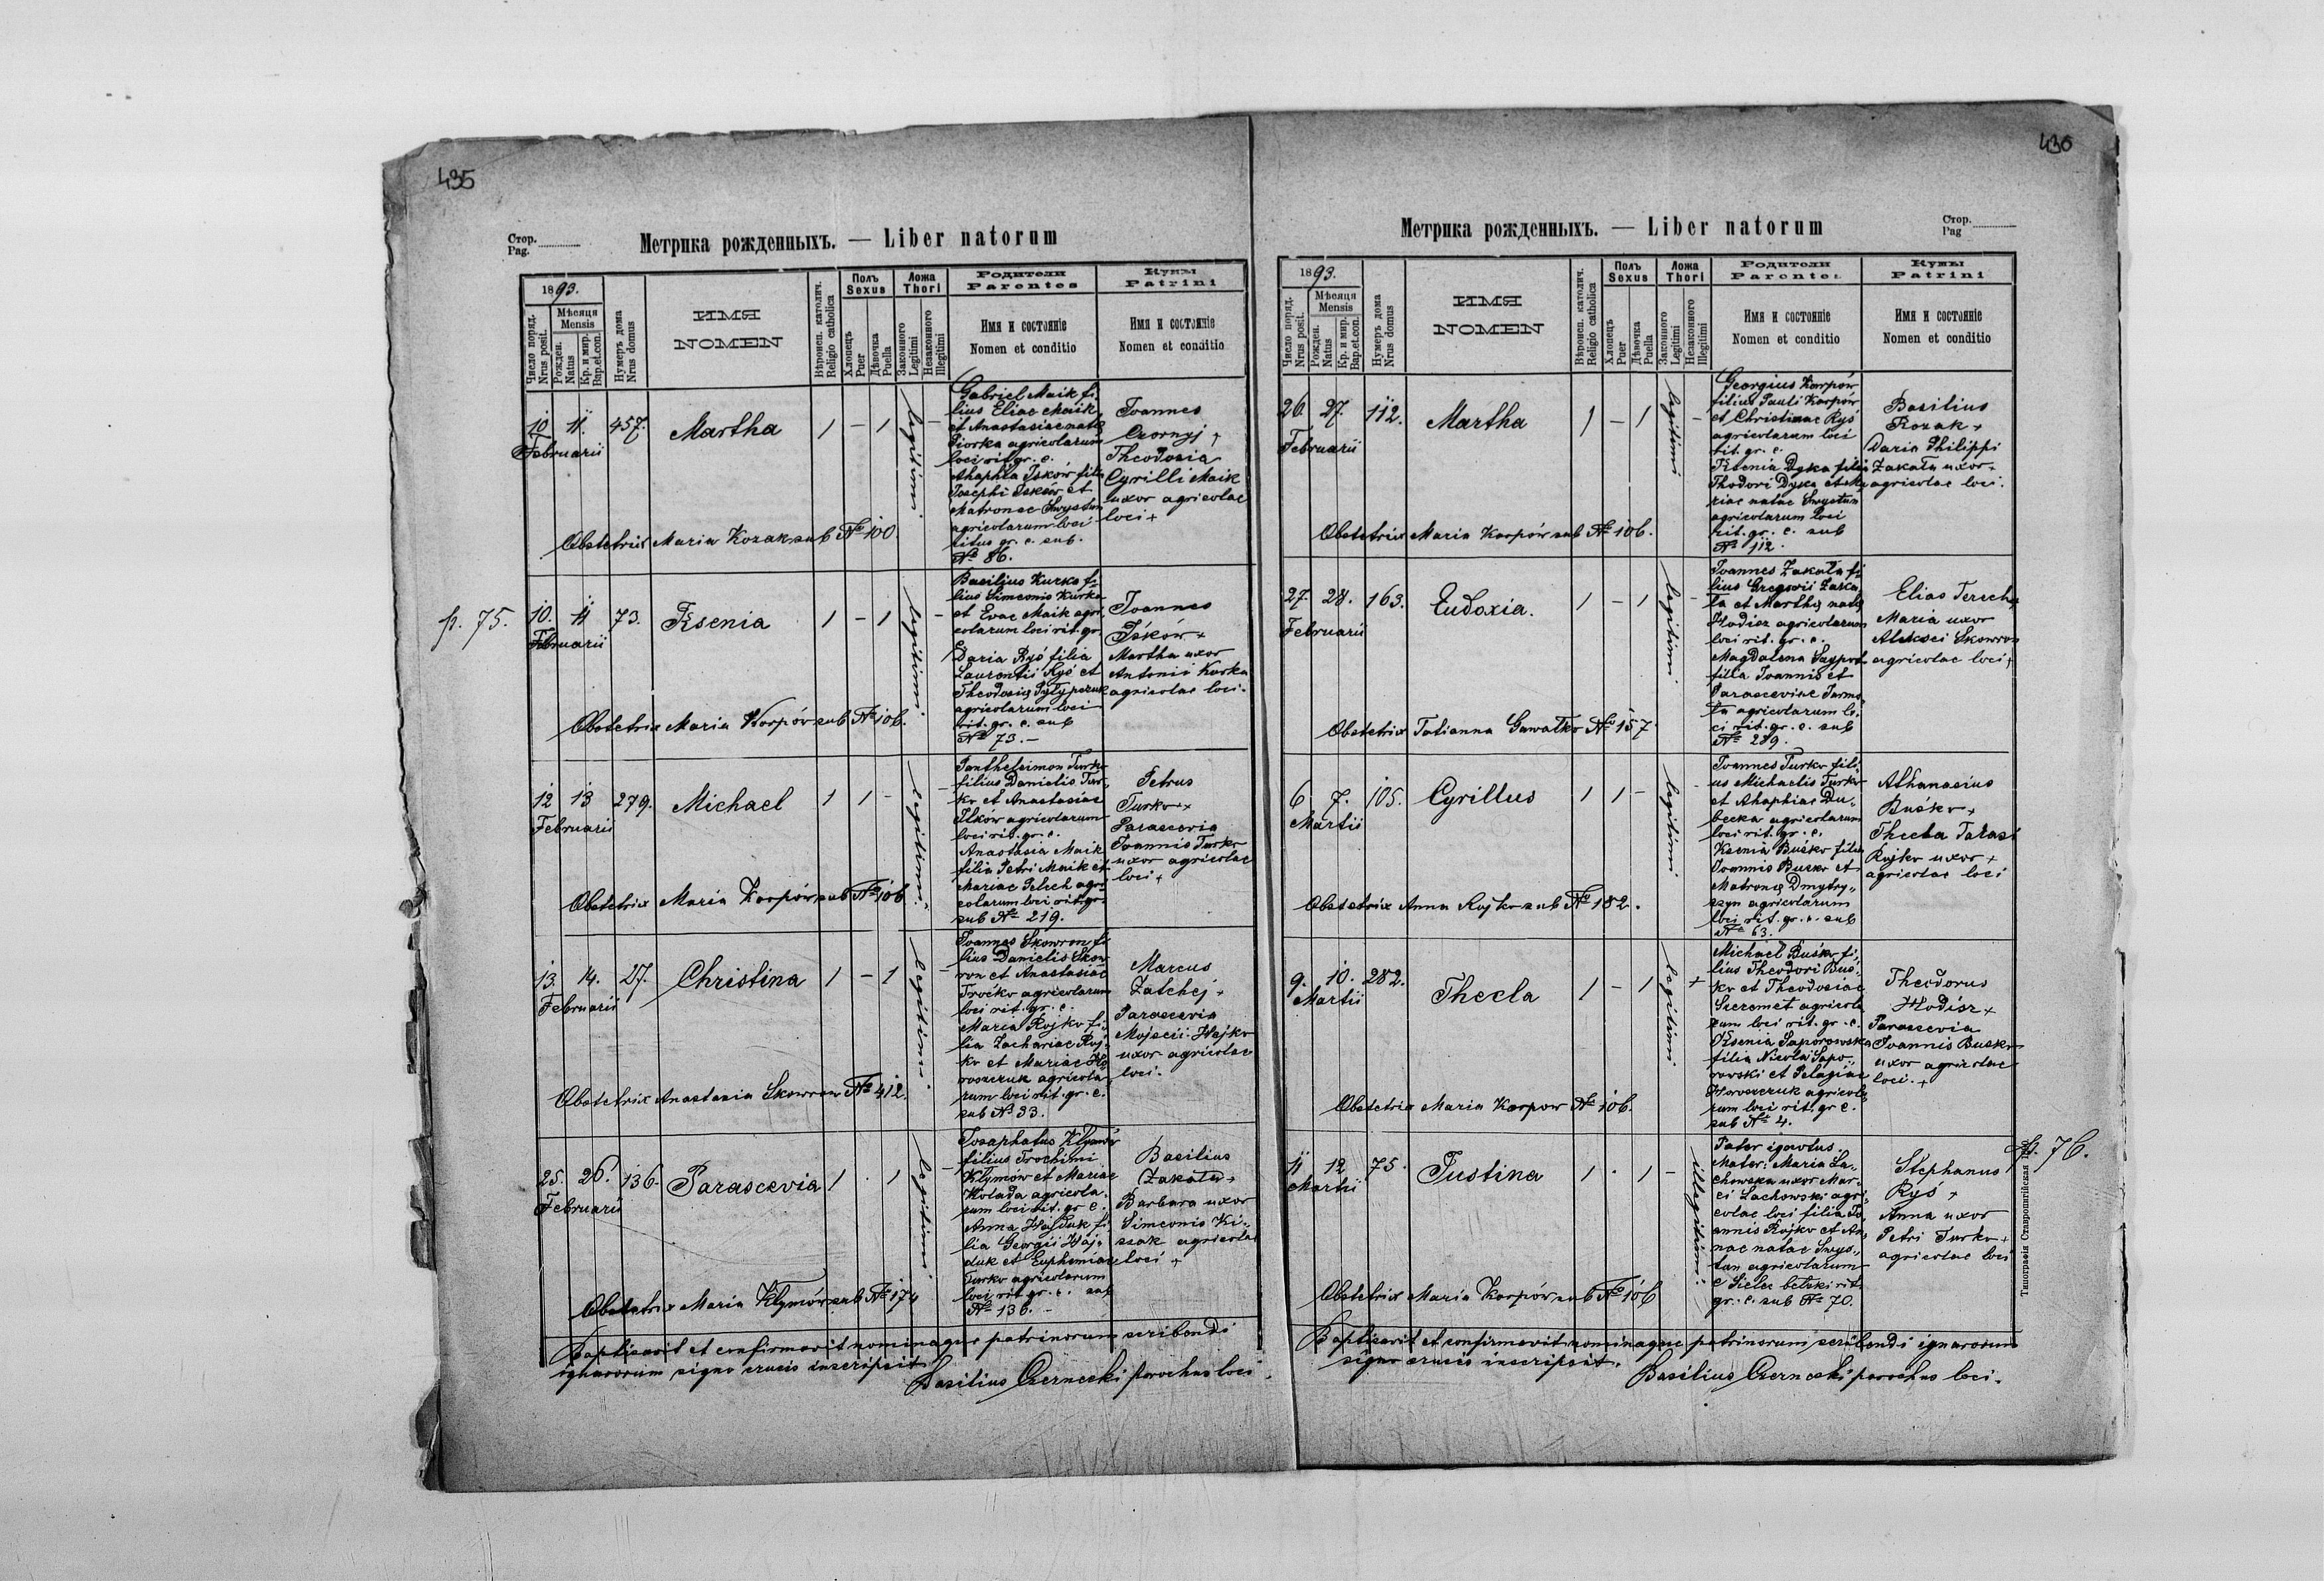 435
Стор.
Pag.
Метрика рожденныхъ. — Liber natorum
1893.
Число поряд.
Nrus posit.
Мѣсяця
Mensis
Рожден.
Natus
Кр. и мир.
Bap.et.con.
Нумеръ дома
Nrus domus
ИМЯ
NOMEN
Вѣроисп. католич.
Religio catholica
Полъ
Sexus
Хлопецъ
Puer
Дѣвочка
Puella
Ложа
Thori
Законного
Legitimi
Незаконного
Illegitimi
Родители
Parentes
Имя и состояніе
Nomen et conditio
Кумы
Patrini
Имя и состояніе
Nomen et conditio
10 11. 457. Martha 1 - 1 legitimi -
Februarii
Gabriel Maik fi-
lius Eliae Maik
et Anastasiae natae
Fiorka agricolarum
loci rit. gr. c.
Ahaphia Iśków filia
Josephi Iśków et
Matronae Swystun
agricolarum loci
ritus gr. c. sub.
№ 86.
Joannes
Czornyj +
Theodosia
Cyrilli Maik
uxor agricolae
loci +
Obstetrix Maria Kozak sub № 100.
p. 75.
10. 11 73. Ksenia 1 - 1 legitimi -
Februarii
Basilius Kurko fi-
lius Simeonis Kurko
et Evae Maik agri-
colarum loci rit. gr.
c.
Daria Ryś filia
Laurentii Ryś et
Theodosiae Pylypczuk
agricolarum loci
rit. gr. c. sub
№ 73. —
Joannes
Iśków +
Martha uxor
Antonii Korka
agricolae loci.
Obstetrix Maria Korpów sub № 106.
12 13 279. Michael 1 1 - legitimi -
Februarii
Pantheleimon Turko
filius Danielis Tur-
ko et Anastasiae
Ilków agricolarum
loci rit. gr. c.
Anastasia Maik
filia Petri Maik et
Mariae Pelech agri-
colarum loci rit. gr.
sub № 219.
Petrus
Turko +
Parascevia
Joannis Turko
uxor agricolae
loci +
Obstetrix Maria Korpów sub № 106
13. 14. 27. Christina 1 - 1 legitimi -
Februarii
Joannes Skowron fi-
lius Danielis Skow-
ron et Anastasiae
Troćko agricolarum
loci rit. gr. c.
Maria Rojko fi-
lia Zachariae Roj-
ko et Mariae Ho-
roszczuk agricola-
rum loci rit. gr. c.
sub № 33.
Marcus
Zatchej +
Parascevia
Mojseii Hajko
uxor agricolae
loci.
Obstetrix Anastasia Skowron № 412.
25. 26. 136. Parascevia 1 . 1 legitimi -
Februarii
Josaphatus Klymów
filius Trochimi
Klymów et Mariae
Kolada agricola-
rum loci rit. gr. c.
Anna Hajduk fi-
lia Georgii Haj-
duk et Euphemiae
Turko agricolarum
loci rit. gr. c. sub
№ 136. —
Basilius
Zakała +
Barbara uxor
Simeonis Ki-
szak agricolae
loci +
Obstetrix Maria Klymów sub № 174
Baptisavit et confirmavit nominaque patrinorum scribendi
ignarorum signo crucis inscripsit
Basilius Czernecki parochus loci.
436
Стор.
Pag
Метрика рожденныхъ. — Liber natorum
1893.
Число поряд.
Nrus posit.
Мѣсяця
Mensis
Рожден.
Natus
Кр. и мир.
Bap.et.con.
Нумеръ дома
Nrus domus
ИМЯ
NOMEN
Вѣроисп. католич.
Religio catholica
Полъ
Sexus
Хлопецъ
Puer
Дѣвочка
Puella
Ложа
Thori
Законного
Legitimi
Незаконного
Illegitimi
Родители
Parentes
Имя и состояніе
Nomen et conditio
Кумы
Patrini
Имя и состояніе
Nomen et conditio
26. 27. 112. Martha 1 - 1 legitimi -
Februarii
Georgius Korpów
filius Pauli Korpów
et Christinae Ryś
agricolarum loci
rit. gr. c.
Ksenia Dyka filia
Thodori Dyka et Ma-
riae natae Swystun
agricolarum loci
rit. gr. c. sub
№ 112.
Basilius
Kozak +
Daria Philippi
Zakała uxor +
agricolae loci.
Obstetrix Maria Korpów sub № 106.
27. 28. 163. Eudoxia. 1 - 1 legitimi -
Februarii
Joannes Zakała fi-
lius Gregorii Zaka-
ła et Marthae natae
Hodisz agricolarum
loci rit. gr. c.
Magdalena
filia Joannis et
Parasceviae
agricolarum lo-
ci rit. gr. c. sub
№ 289.
Elias Terech +
Maria uxor
Aleksei Skowron
agricolae loci +
Obstetrix Tatianna Gawałko № 157.
6 7. 105. Cyrillus 1 1 - legitimi -
Martii
Joannes Turko fili-
us Michaelis Turko
et Ahaphiae Du-
becka agricolarum
loci rit. gr. c.
Ksenia Buśko filia
Joannis Buśko et
Matronae Dmytry-
szyn agricolarum
loci rit. gr. c. sub
№ 63.
Athanasius
Buśko +
Thecla Tarasi
Rojko uxor +
agricolae loci
Obstetrix Anna Rojko sub № 182.
9. 10. 282. Thecla 1 - 1 legitimi +
Martii
Michael Buśko fi-
lius Theodori Buś-
ko et Theodosiae
Szeremet agricola-
rum loci rit. gr. c.
Ksenia Saporowska
filia Nicolai Sapo-
rowski et Pelagiae
Horoszczuk agricola-
rum loci rit. gr. c.
sub № 4.
Theodorus
Hodisz +
Parascevia
Joannis Busko
uxor agricolae
loci. +
Obstetrix Maria Korpow № 106.
11 12 75. Justina 1 . 1 - illegitimi.
Martii
Pater ignotus
Mater: Maria La-
chowska uxor Mar-
ci Lachowski agri-
colae loci filia Jo-
annis Rojko et An-
nae natae Swys-
tun agricolarum
e Sielec bełski rit.
gr. c. sub № 70.
Stephanus
Ryś +
Anna uxor
Petri Turko +
agricolae loci
p. 76.
Obstetrix Maria Korpów sub № 106
Baptisavit et confirmavit nominaque patrinorum scribendi ignarorum
signo crucis inscripsit.
Basilius Czernecki parochus loci.
Типографія Ставропигійская